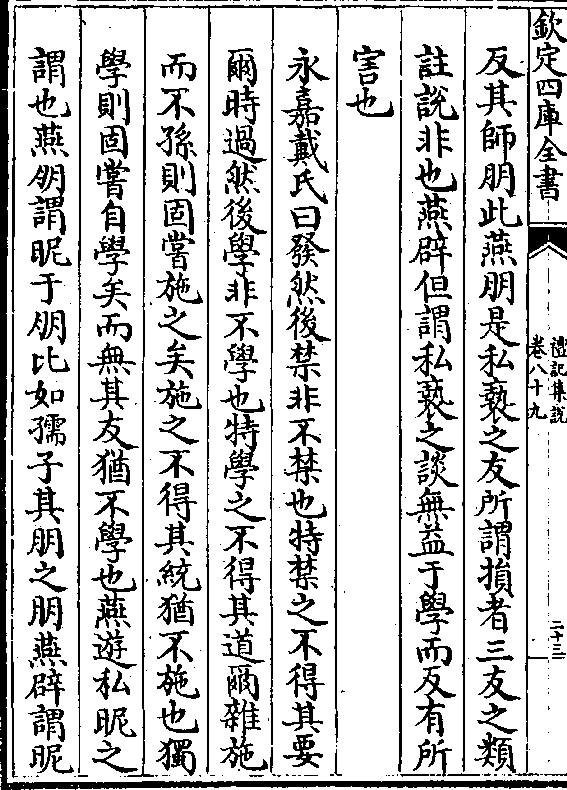 欽定四庫全書
禮記集說
卷八十九
二十三
反其師朋此燕朋是私䙝之友所謂損者三友之類
註說非也燕辟但謂私䙝之談無益于學而反有所
害也
永嘉戴氏曰發然後禁非不禁也特禁之不得其要
爾時過然後學非不學也特學之不得其道爾雜施
而不孫則固嘗施之矣施之不得其統猶不施也獨
學則固嘗自學矣而無其友猶不學也燕遊私昵之
謂也燕朋謂昵于朋比如孺子其朋之朋燕辟謂昵